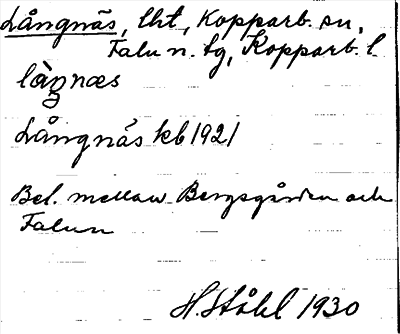 Långnäs, lht, Kopparb. sn,
Falu n. tg, Kopparb. l
Långnäs kb 1921
Bel. mellan Bergsgården och
Falun
H. Ståhl 1930